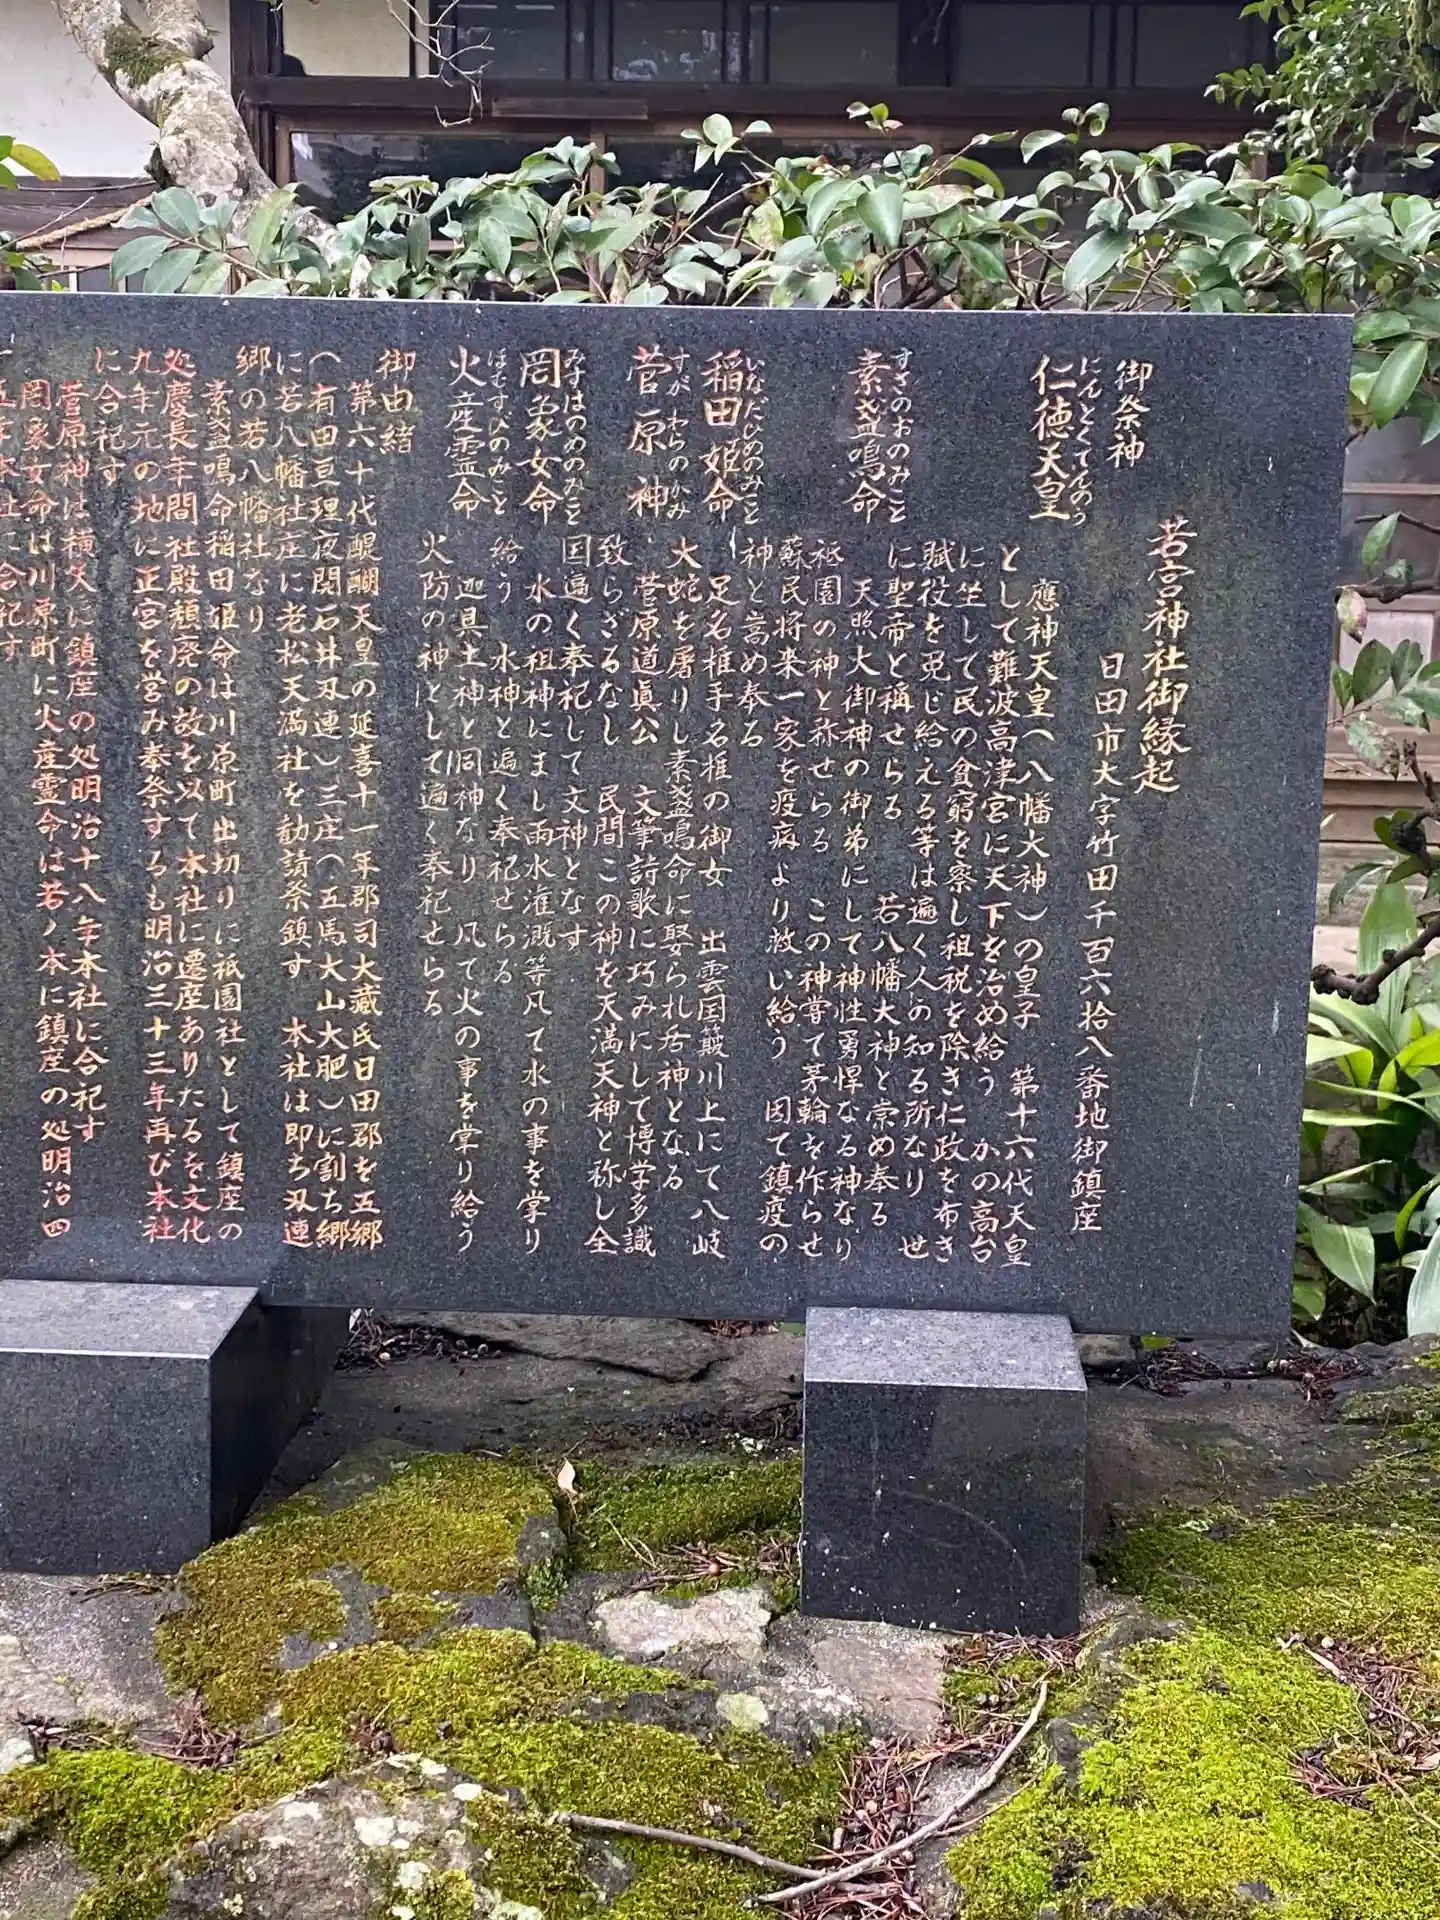 若宮神社御縁起
日田市大字竹田千百六拾八番地御鎮座
御祭神
にんとくてんのう
仁徳天皇
應神天皇(八幡大神)の皇子 第十六代天皇
として難波高津宮に天下を治め給う かの高台
に坐して民の貧窮を察し祖税を除き仁政を布き
賦役を免じ給える等は遍く人の知る所なり 世
に聖帝と稱せらる 若八幡大神と崇め奉る
すさのおのみこと
素盞鳴命
天照大御神の御弟にして神性勇悍なる神なり
祇園の神と称せらる この神嘗て茅輪を作らせ
蘇民将来一家を疫病より救い給う 因て鎮疫の
神と崇め奉る
いなだひめのみこと
稲田姫命
足名椎手名椎の御女 出雲国簸川上にて八岐
大蛇を屠りし素盞鳴命に娶られ后神となる
すがわらのかみ
菅原神
菅原道眞公 文筆詩歌に巧みにして博学多識
致らざるなし 民間この神を天満天神と称し全
国遍く奉祀して文神となす
みずはのめのみこと
罔象女命
水の祖神にまし雨水灌漑等凡て水の事を掌り
給う 水神と遍く奉祀せらる
ほむすびのみこと
火産霊命
迦具土神と同神なり 凡て火の事を掌り給う
火防の神として遍く奉祀せらる
御由緒
第六十代醍醐天皇の延喜十一年郡司大蔵氏日田郡を五郷
(有田亘理夜開石井刃連)三庄(五馬大山大肥)に割ち郷
に若八幡社庄に老松天満社を勧請祭鎮す 本社は即ち刃連
郷の若八幡社なり
素盞鳴命稲田姫命は川原町出切りに祇園社として鎮座の
処慶長年間社殿頽廃の故を以て本社に遷座ありたるを文化
九年元の地に正宮を営み奉祭するも明治三十三年再び本社
に合祀す
菅原神は横矢に鎮座の処明治十八年本社に合祀す
罔象女命は川原町に火産霊命は若ノ本に鎮座の処明治四